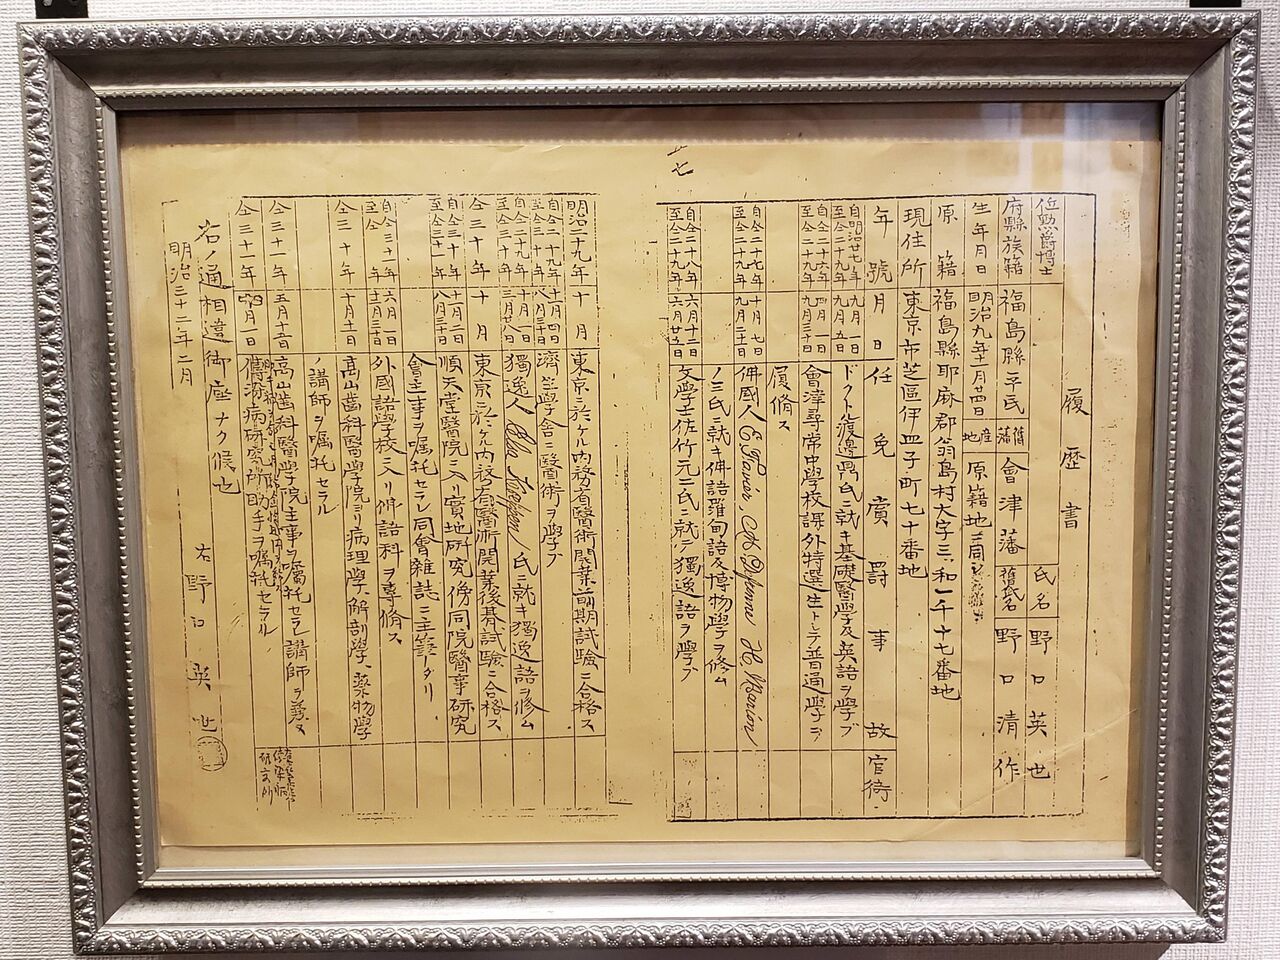 五七
履歴書
位勲爵博士 氏名 野口英世
府縣族籍 福島縣平民 舊藩 會津藩 舊氏名 野口清作
生年月日 明治九年十一月廿四日 産地 原籍地ニ同シ
原籍 福島縣耶麻郡翁島村大字三ッ和一千十七番地
現住所 東京市芝區伊皿子町七十番地
年號月日 任免賞罰事故 官衙
自明治廿七年九月一日 ドクトル渡邊鼎氏ニ就キ基礎醫學及英語ヲ學ブ
至仝二十九年九月五日
自仝二十六年四月一日 會津尋常中學校課外特選生トシテ普通學ヲ
至仝二十九年九月三十日
履脩ス
自仝二十七年十月七日 佛國人 H Marion
至仝二十九年九月二十日
ノ三氏ニ就キ佛語羅甸語及博物學ヲ修ム
自仝二十八年六月十二日 文學士佐竹元二氏ニ就テ獨逸語ヲ學ブ
至仝二十九年六月廿五日
明治二十九年十月 東京ニ於ケル内務省醫術開業前期試驗ニ合格ス
自仝二十九年十一月四日 濟生學舎ニ醫術ヲ學ブ
至仝三十年八月三十日
自仝二十九年十月一日 獨逸人 氏ニ就キ獨逸語ヲ修ム
至仝三十年三月廿八日
仝三十年十月 東京ニ於ケル内務省醫術開業後期試驗ニ合格ス
自仝三十年十一月二日 順天堂醫院ニ入リ實地研究傍同院醫事研究
至仝三十一年八月三十日
會主事ヲ嘱託セラレ同會雜誌ニ主筆タリ
自仝三十一年六月一日 外國語學校ニ入リ佛語科ヲ專脩ス
至仝年十一月三十日
仝三十年十月十一日 高山齒科醫學院ヨリ病理學、解剖學、藥物學
ノ講師ヲ嘱託セラル
仝三十一年五月十一日 高山齒科醫學院主事ヲ嘱託セラレ講師ヲ兼ヌ
仝三十一年四月一日 傳染病研究所助手ヲ嘱託セラル
右ノ通相違御座ナク候也
明治三十二年二月
右 野口英世